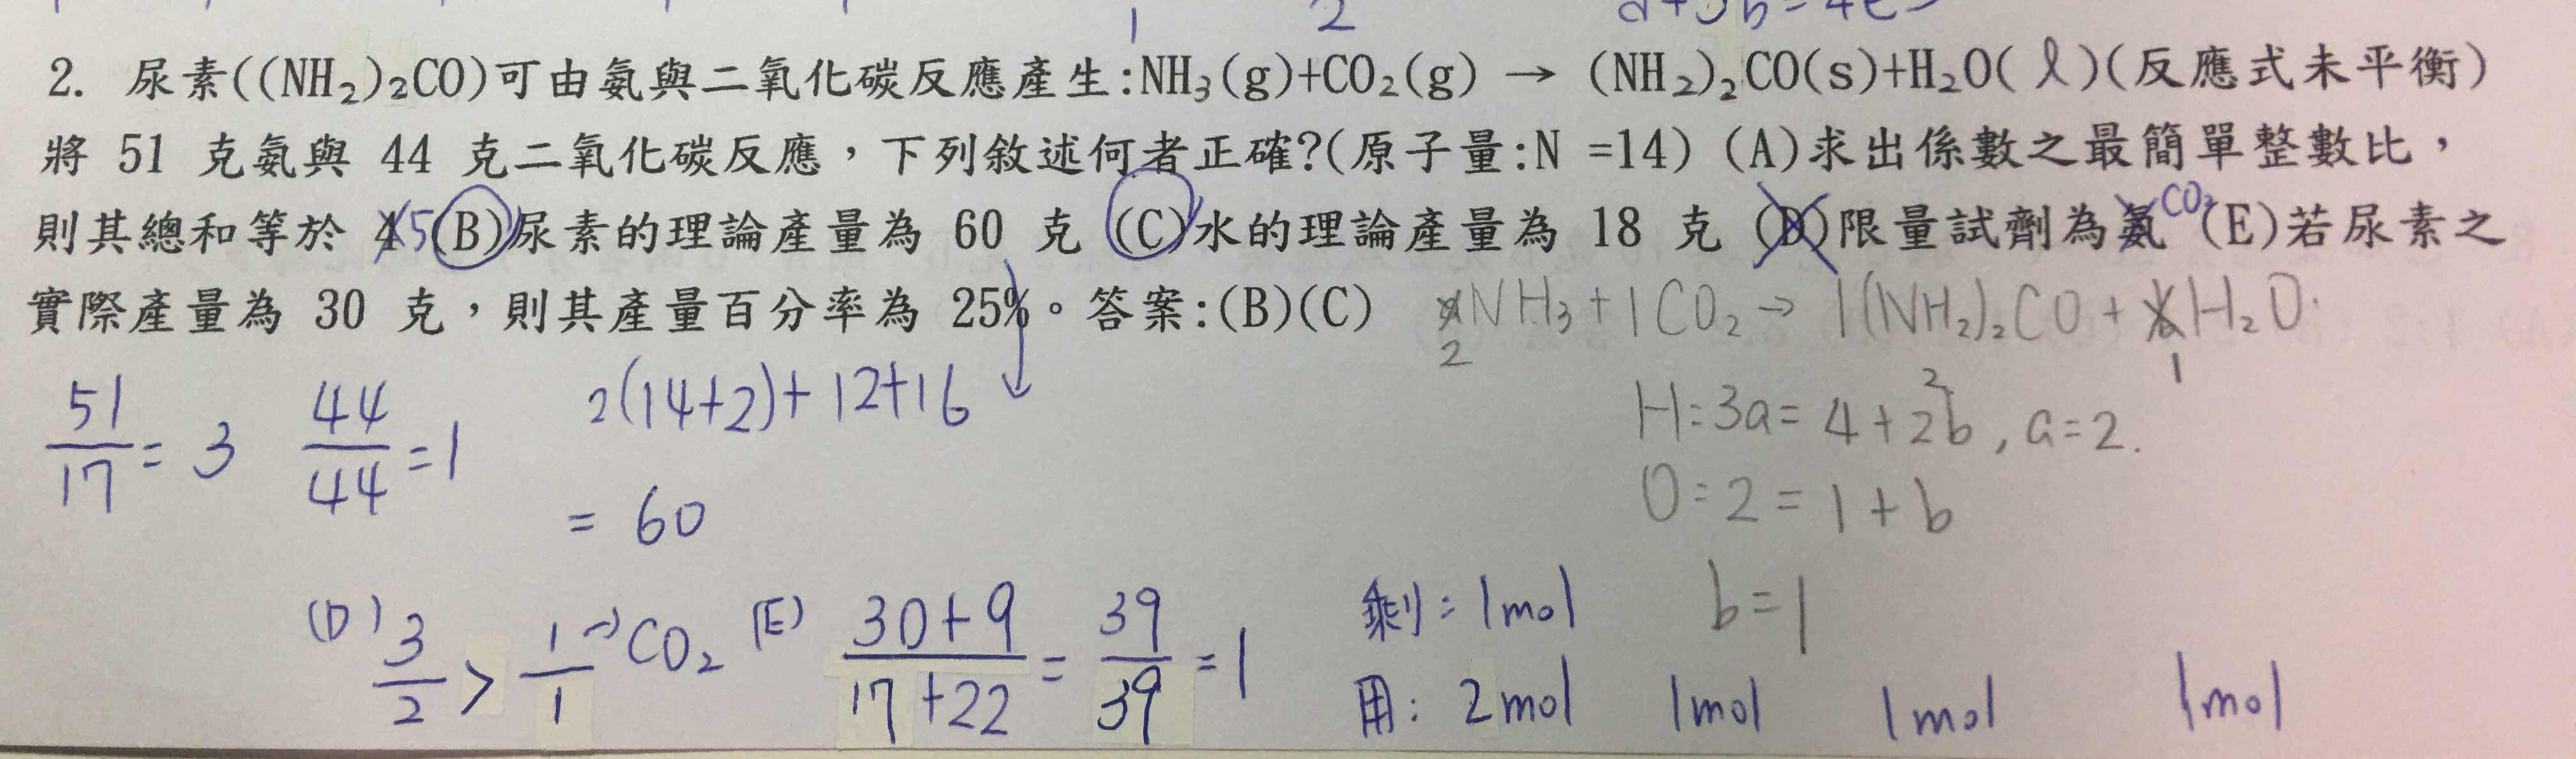 1 2
2. 尿素((NH₂)₂CO)可由氨與二氧化碳反應產生:NH₃(g)+CO₂(g) → (NH₂)₂CO(s)+H₂O(ℓ)(反應式未平衡)
將 51 克氨與 44 克二氧化碳反應，下列敘述何者正確?(原子量:N =14) (A)求出係數之最簡單整數比，
則其總和等於 4 5 (B)尿素的理論產量為 60 克 (C)水的理論產量為 18 克 (D)限量試劑為氨 CO₂ (E)若尿素之
實際產量為 30 克，則其產量百分率為 25%。答案:(B)(C)
2NH₃+1CO₂→1(NH₂)₂CO+1H₂O
51/17=3 44/44=1 2(14+2)+12+16 H:3a=4+2b, a=2.
=60 O:2=1+b
b=1
(D) 3/2 > 1/1 → CO₂ (E) 30+9/17+22 = 39/39 = 1
剩:1mol
用:2mol 1mol 1mol 1mol